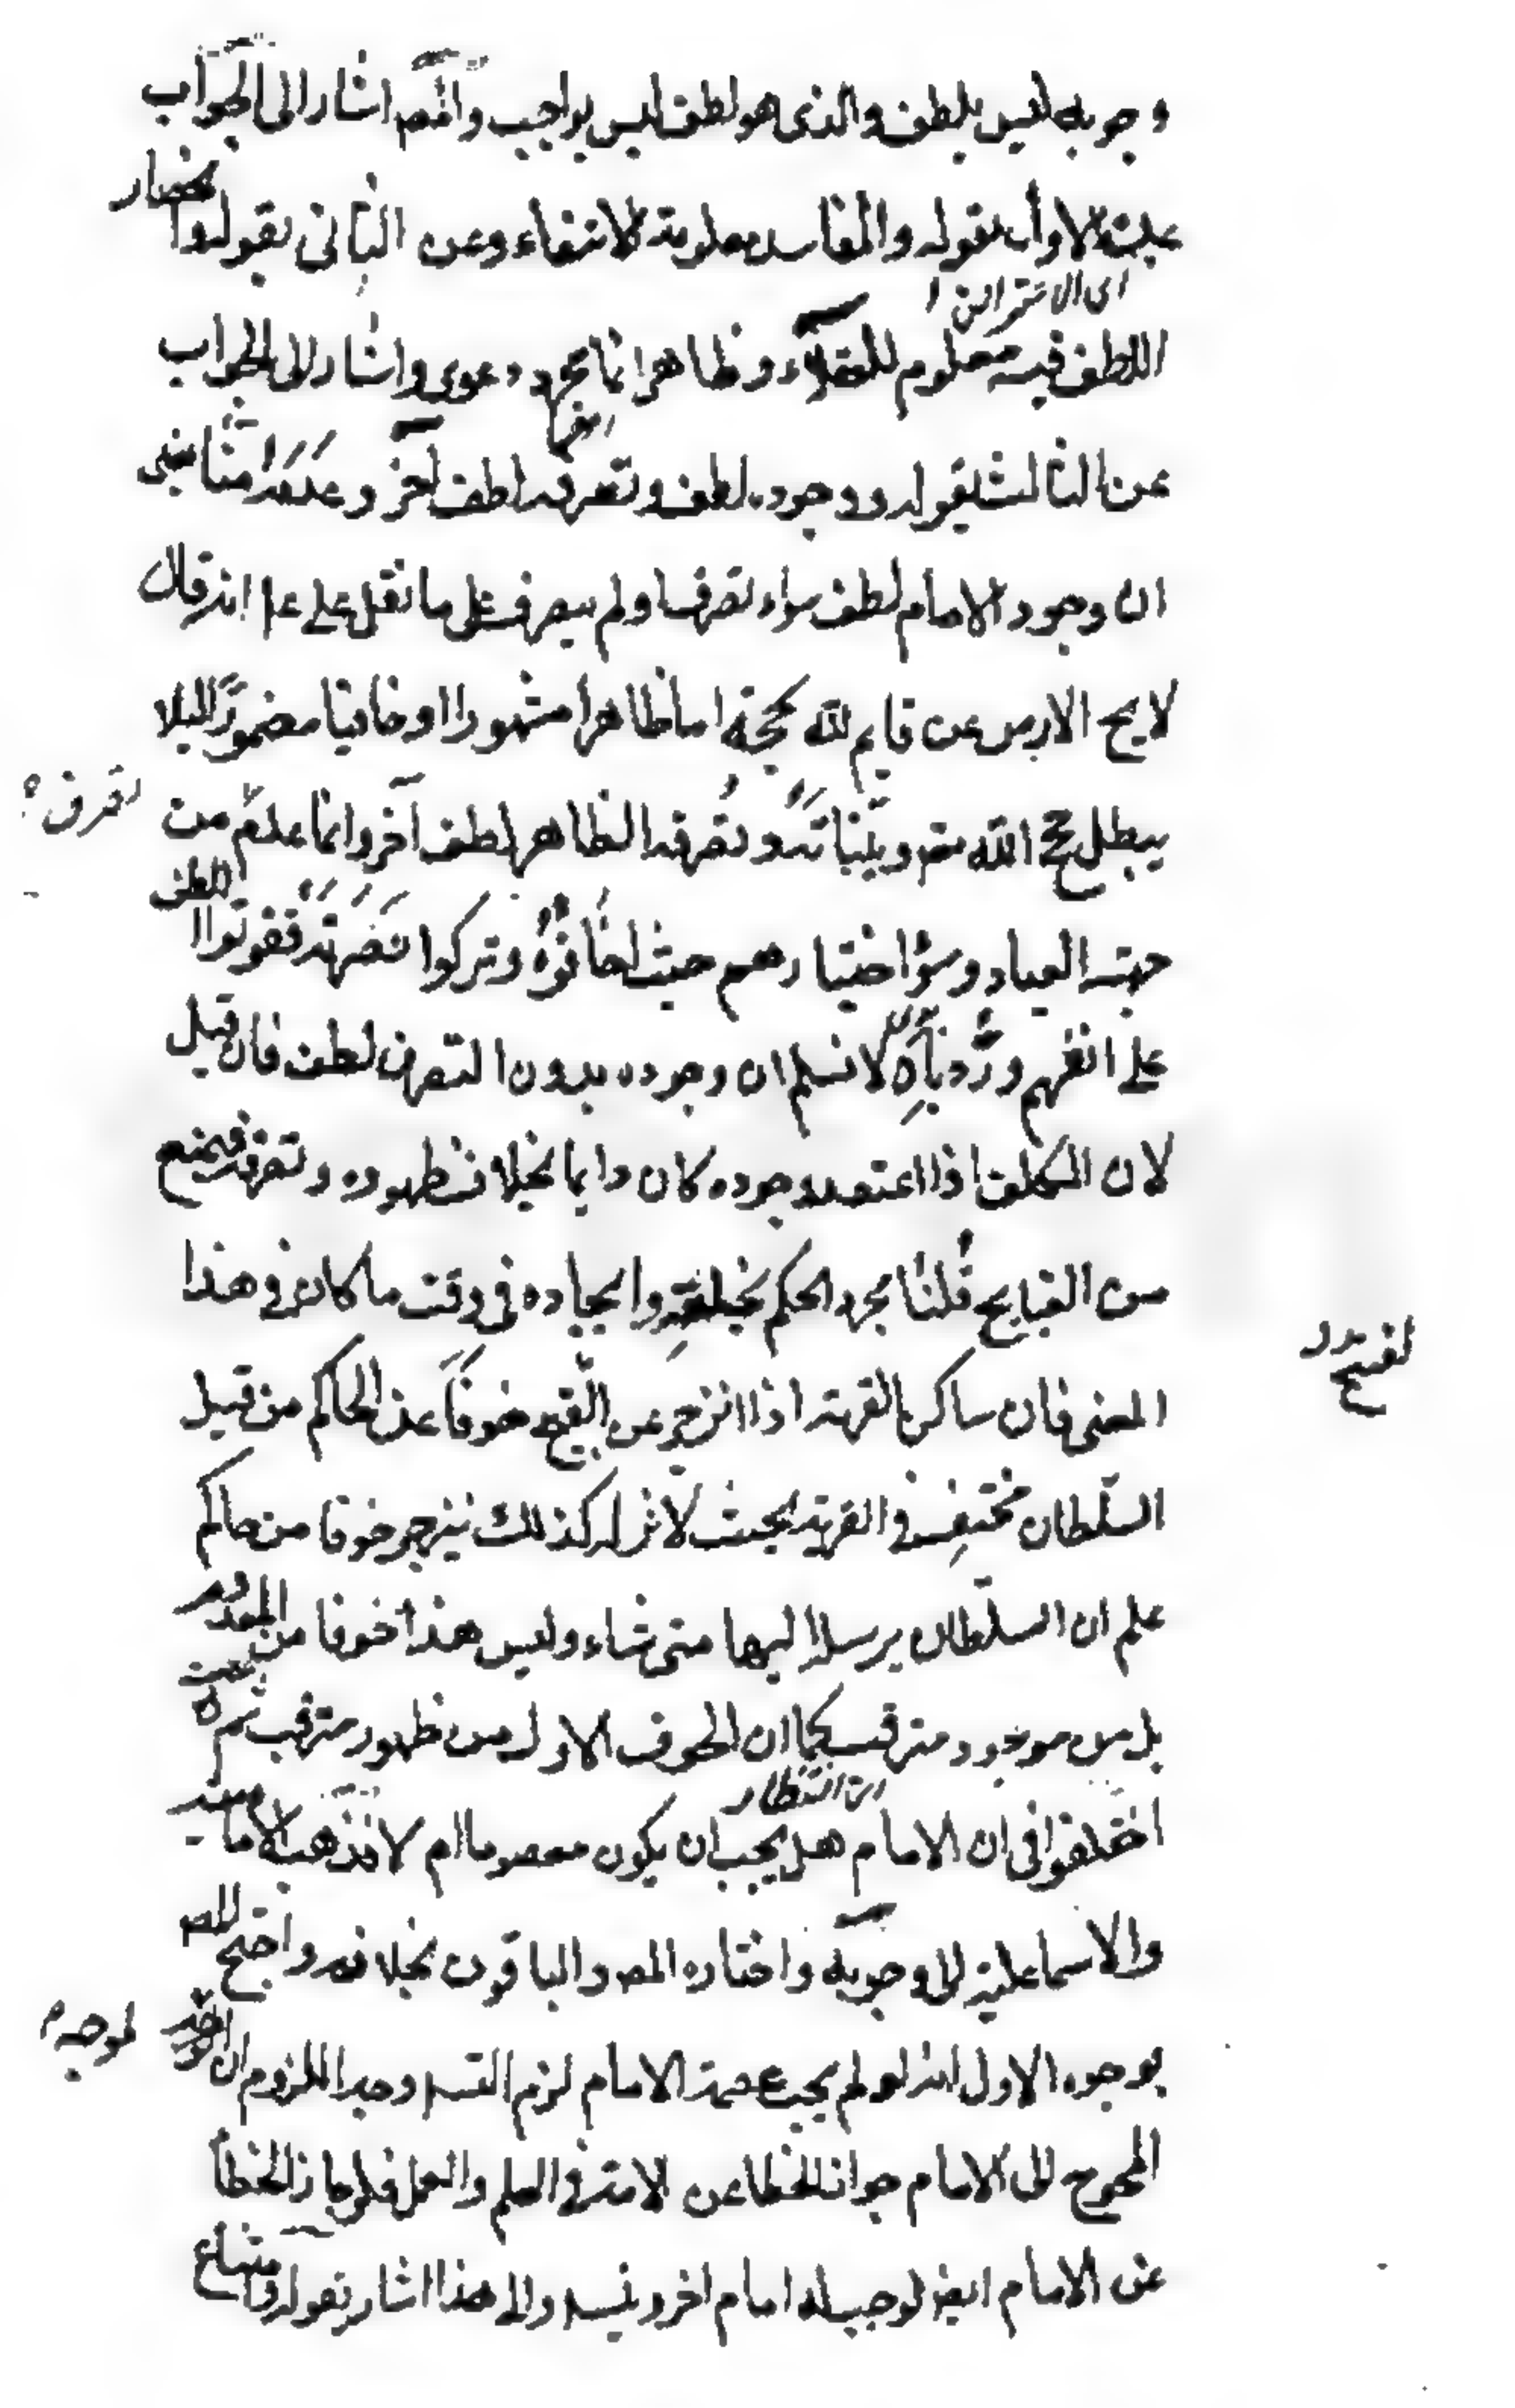 وجوبه ليس بلطف والذى هو لطف ليس بواجب والمصـ اشار الى الجواب
عن الاول بقوله والمفاسد معلومة الانتفاء وعن الثانى بقوله وانحصار
اللطف فيه معلوم للعقلاء وظاهر انما مجرد دعوى واشار الى الجواب
عن الثالث بقوله ووجوده لطف وتصرفه لطف آخر وعدمه منا يعنى
ان وجود الامام لطف سواء تصرف او لم يتصرف على ما نقل على عـ انه قال
لا يخ الارض عن قايم لله بحجته اما ظاهرا مشهورا او خافيا مضمورا لئلا
يبطل حجج الله تعـ وبيناته وتصرفه الظاهر لطف آخر وانما عدمه من
تصرفه
جهة العباد وسؤ اختيارهم حيث اخافوه وتركوا نصرته ففوتوا اللطف
على انفسهم ورد بأنا لا نسلم ان وجوده بدون التصرف لطف فان قيل
لان المكلف اذا اعتقد وجوده كان دايما يخاف ظهوره وتصرفه فيمتنع
من القبايح قلنا مجرد الحكم بخلقه وايجاده فى وقت ما كان فى هذا
المعنى فان ساكن القرية اذا انزجر عن القبيح خوفا عن الحاكم من قبل
السلطان مختف فى القرية بحيث لا اثر له كذلك ينزجر خوفا من حاكم
علم ان السلطان يرسله اليها متى شاء وليس هذا خوفا من المعدوم
بل من موجود مترقب كما ان الخوف الاول من ظهور مترقب ثم
اى انتظار
اختلفوا فى ان الامام هل يجب ان يكون معصوما ام لا فذهب الامامية
والاسماعلية الى وجوبه واختاره المصـ والباقون بخلافه واحتج المصـ
بوجوه الاول انه لو لم يجب عصمة الامام لزم التسـ وجه اللزوم ان
المحوج الى الامام جواز الخطا عن الامة فى العلم والعمل فلو جاز الخطأ
عن الامام ايضا لوجب له امام اخر ويتسـ والى هذا اشار بقوله وامتناع